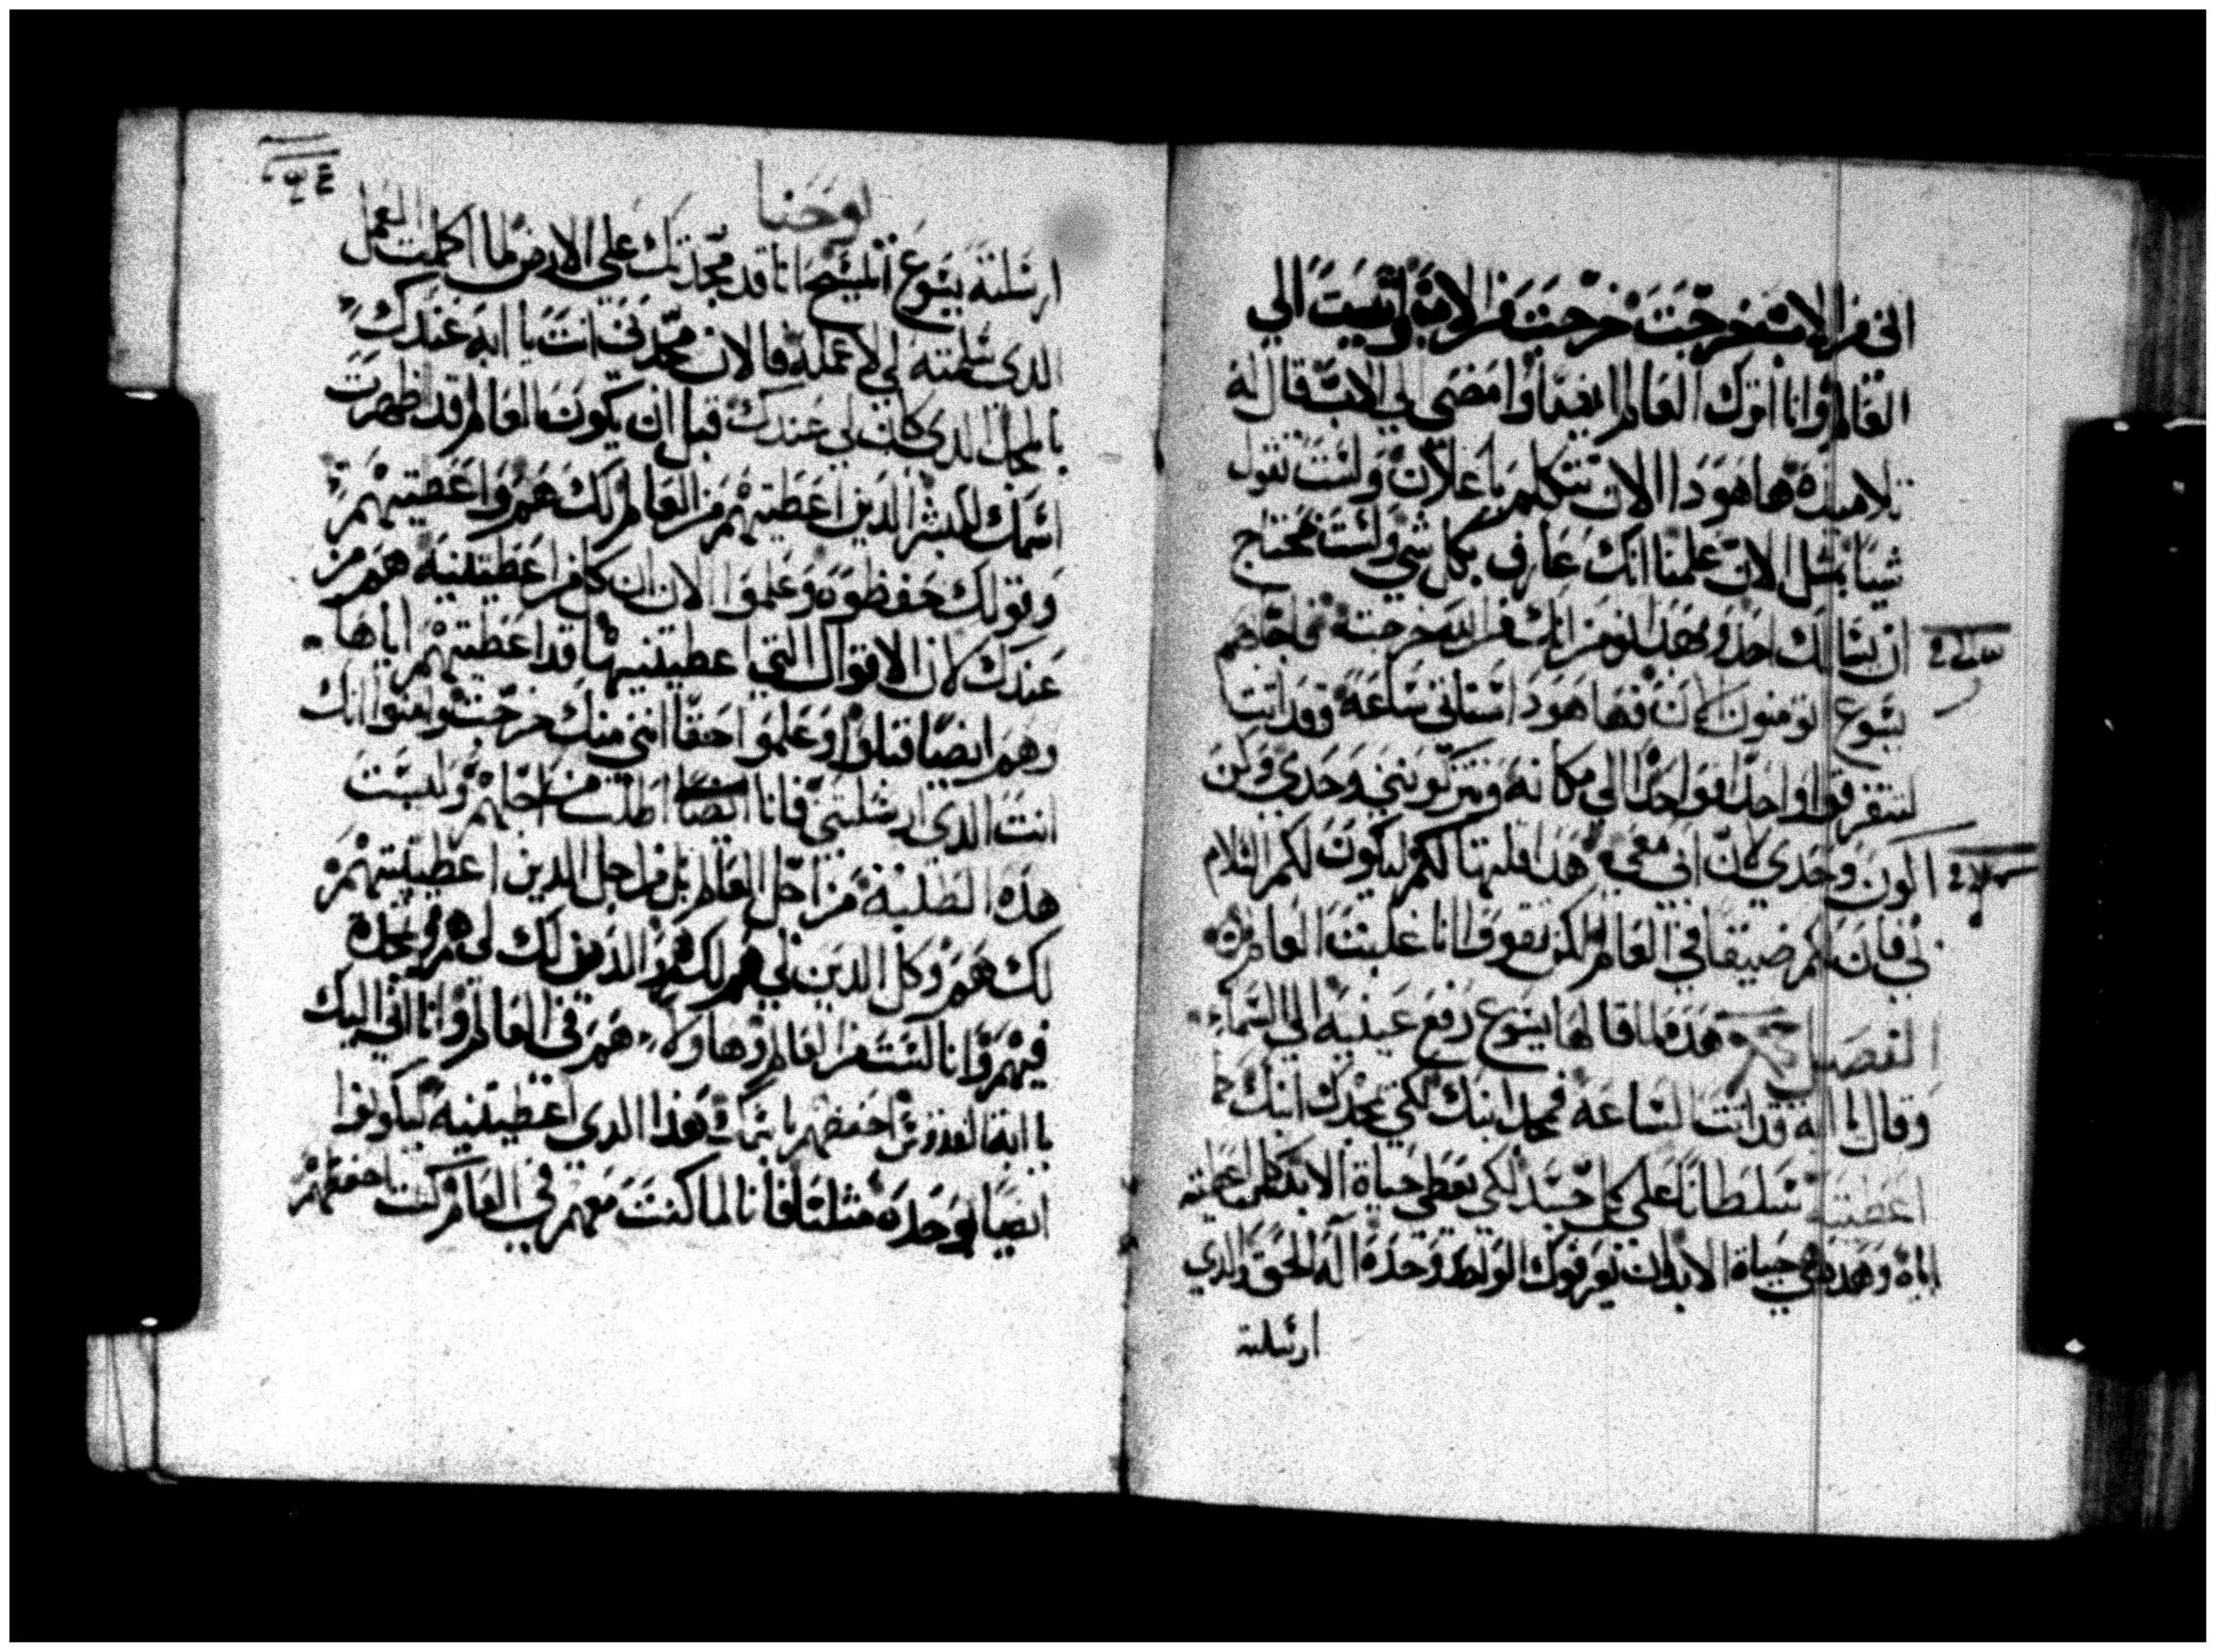 اني من الاب خرجت خرجت من الاب واتيت الي
العالم وانا اترك العالم ايضا وامضي الي الاب قال له
تلاميذه ها هودا الان تتكلم باعلان ولست تقول
شيا بمثل الان علمنا انك عارف بكل شي ولست تحتاج
ان يسالك احد وبهدا نومن انك من الله خرجت فاجابهم
يسوع تومنون الان فها هودا ستاتي ساعة وقد اتت
لتتفرقوا واحدا فواحدا الي مكانه وتتركونني وحدي ولكن
اكون وحدي لان ابي معي هدا قلتها لكم ليكون لكم السلام
بي فان لكم ضيقا في العالم لكن تقووا انا غلبت العالم
الفصل هده لما قالها يسوع رفع عينيه الي السماء
وقال ابه قد اتت الساعة فمجد ابنك لكي يمجدك ابنك كما
اعطيته سلطانا علي كل جسد لكي يعطي حياة الابد لكل من اعطيته
اياه وهده هي حياة الابد ان يعرفوك الوحده اله الحق والدي
ارسلته
يوحنا
ارسلته يسوع المسيح انا قد مجدتك علي الارض لما اكملت العمل
الدي سلمته لي لاعمله فالان مجدني انت يا ابه عندك
بالمجد الدي كان لي عندك قبل ان يكون العالم قد ظهرت
اسمك للبشر الدين اعطيتهم من العالم لك هم واعطيتهم
وقولك حفظوه وعلموا الان ان كلمن اعطيتنيه هم من
عندك لان الاقوال التي اعطيتنيها قد اعطيتهم اياها
وهم ايضا قبلوا وعلموا حقا انني منك خرجت وامنوا انك
انت الدي ارسلتني فانا ايضا اطلب من اجلهم وليست
هده الطلبة من اجل العالم بل من اجل الدين اعطيتنيهم
لك هم وكل الدين لي هم لك والدين لك لي هم وممجد
فيهم وانا لست من العالم وهاولاء هم في العالم وانا اتي اليك
يا ابه القدوس احفظهم باسمك هدا الدي اعطيتنيه ليكونوا
ايضا لوحده مثلنا فانا لما كنت معهم في العالم كنت احفظهم